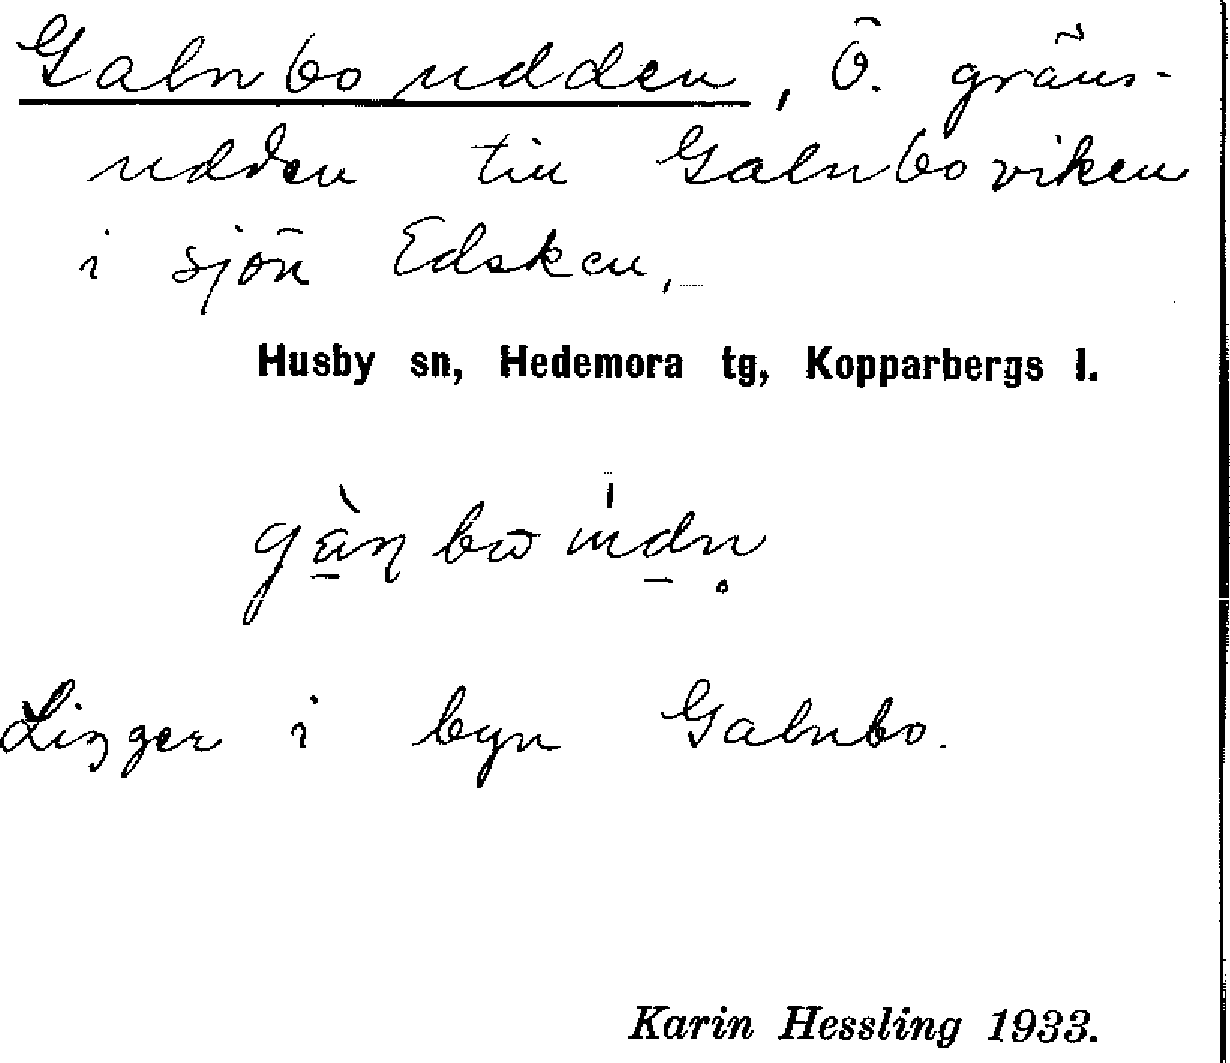 Galnbo udden, Ö. gräns-
udden till Galnboviken
i sjön Edsken.
Husby sn, Hedemora tg, Kopparbergs l.
Ligger i byn Galnbo.
Karin Hessling 1933.